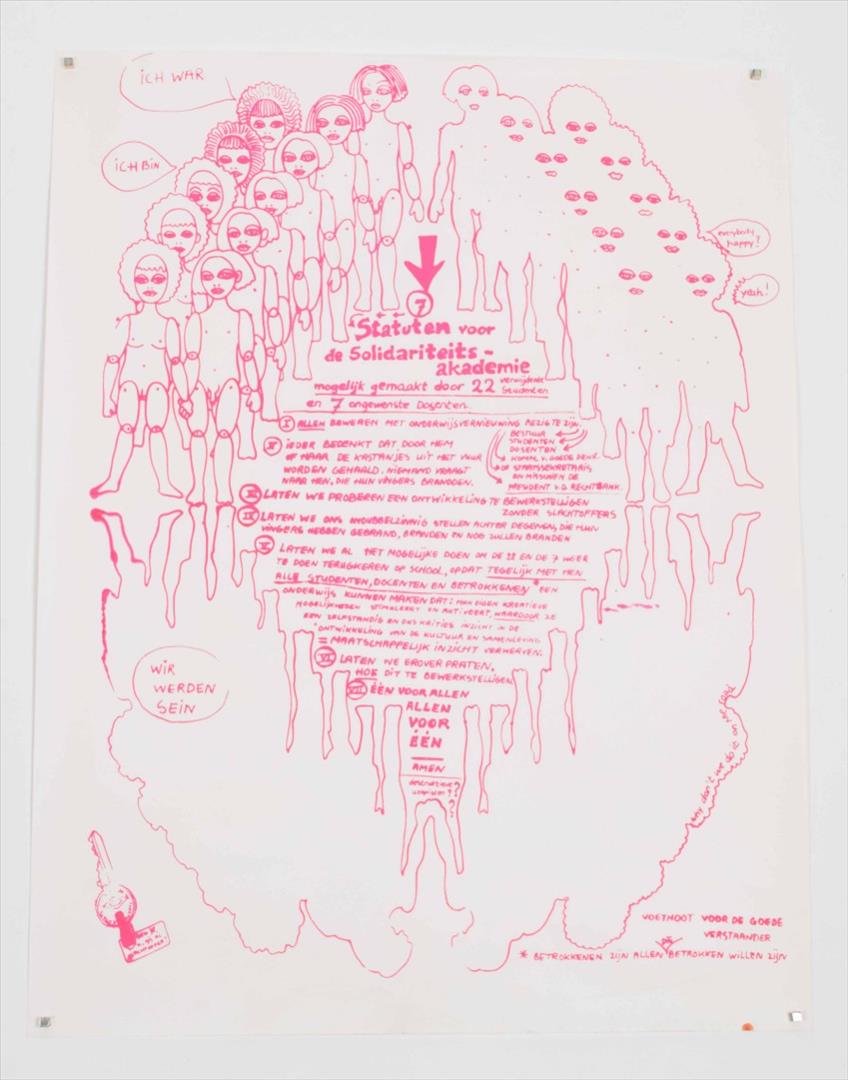 ICH WAR
ICH BIN
everybody happy?
yeah!
7
Statuten voor
de Solidariteits-
akademie
mogelijk gemaakt door 22 verwijderde Studenten
en 7 ongewenste Dosenten.
I ALLEN BEWEREN MET ONDERWIJSVERNIEUWING BEZIG TE ZIJN.
BESTUUR
STUDENTEN
DOSENTEN
KOMM. V. GOEDE DIENST.
STAATSSEKRETARIS
EN MISSCHIEN DE
PRESIDENT V.D. RECHTBANK.
II IEDER BEDENKT DAT DOOR HEM
OF HAAR DE KASTANJES UIT HET VUUR
WORDEN GEHAALD. NIEMAND VRAAGT
NAAR HEN, DIE HUN VINGERS BRANDDEN.
III LATEN WE PROBEREN EEN ONTWIKKELING TE BEWERKSTELLIGEN
ZONDER SLACHTOFFERS
IV LATEN WE ONS ONDUBBELZINNIG STELLEN ACHTER DEGENEN, DIE HUN
VINGERS HEBBEN GEBRAND, BRANDEN EN NOG ZULLEN BRANDEN
V LATEN WE AL HET MOGELIJKE DOEN OM DE 22 EN DE 7 WEER
TE DOEN TERUGKEREN OP SCHOOL, OPDAT TEGELIJK MET HEN
ALLE STUDENTEN, DOCENTEN EN BETROKKENEN * EEN
ONDERWIJS KUNNEN MAKEN DAT: HUN EIGEN KREATIEVE
MOGELIJKHEDEN STIMULEERT EN AKTIVEERT, WAARDOOR ZE
EEN ZELFSTANDIG EN KRITIES INZICHT IN DE
ONTWIKKELING VAN DE KULTUUR EN SAMENLEVING
= MAATSCHAPPELIJK INZICHT VERWERVEN.
VI LATEN WE EROVER PRATEN,
HOE DIT TE BEWERKSTELLIGEN
VII ÉÉN VOOR ALLEN
ALLEN
VOOR
ÉÉN
AMEN
WIR
WERDEN
SEIN
why don't we do it on the road
VOETNOOT VOOR DE GOEDE
VERSTAANDER
* BETROKKENEN ZIJN ALLEN DIE BETROKKEN WILLEN ZIJN